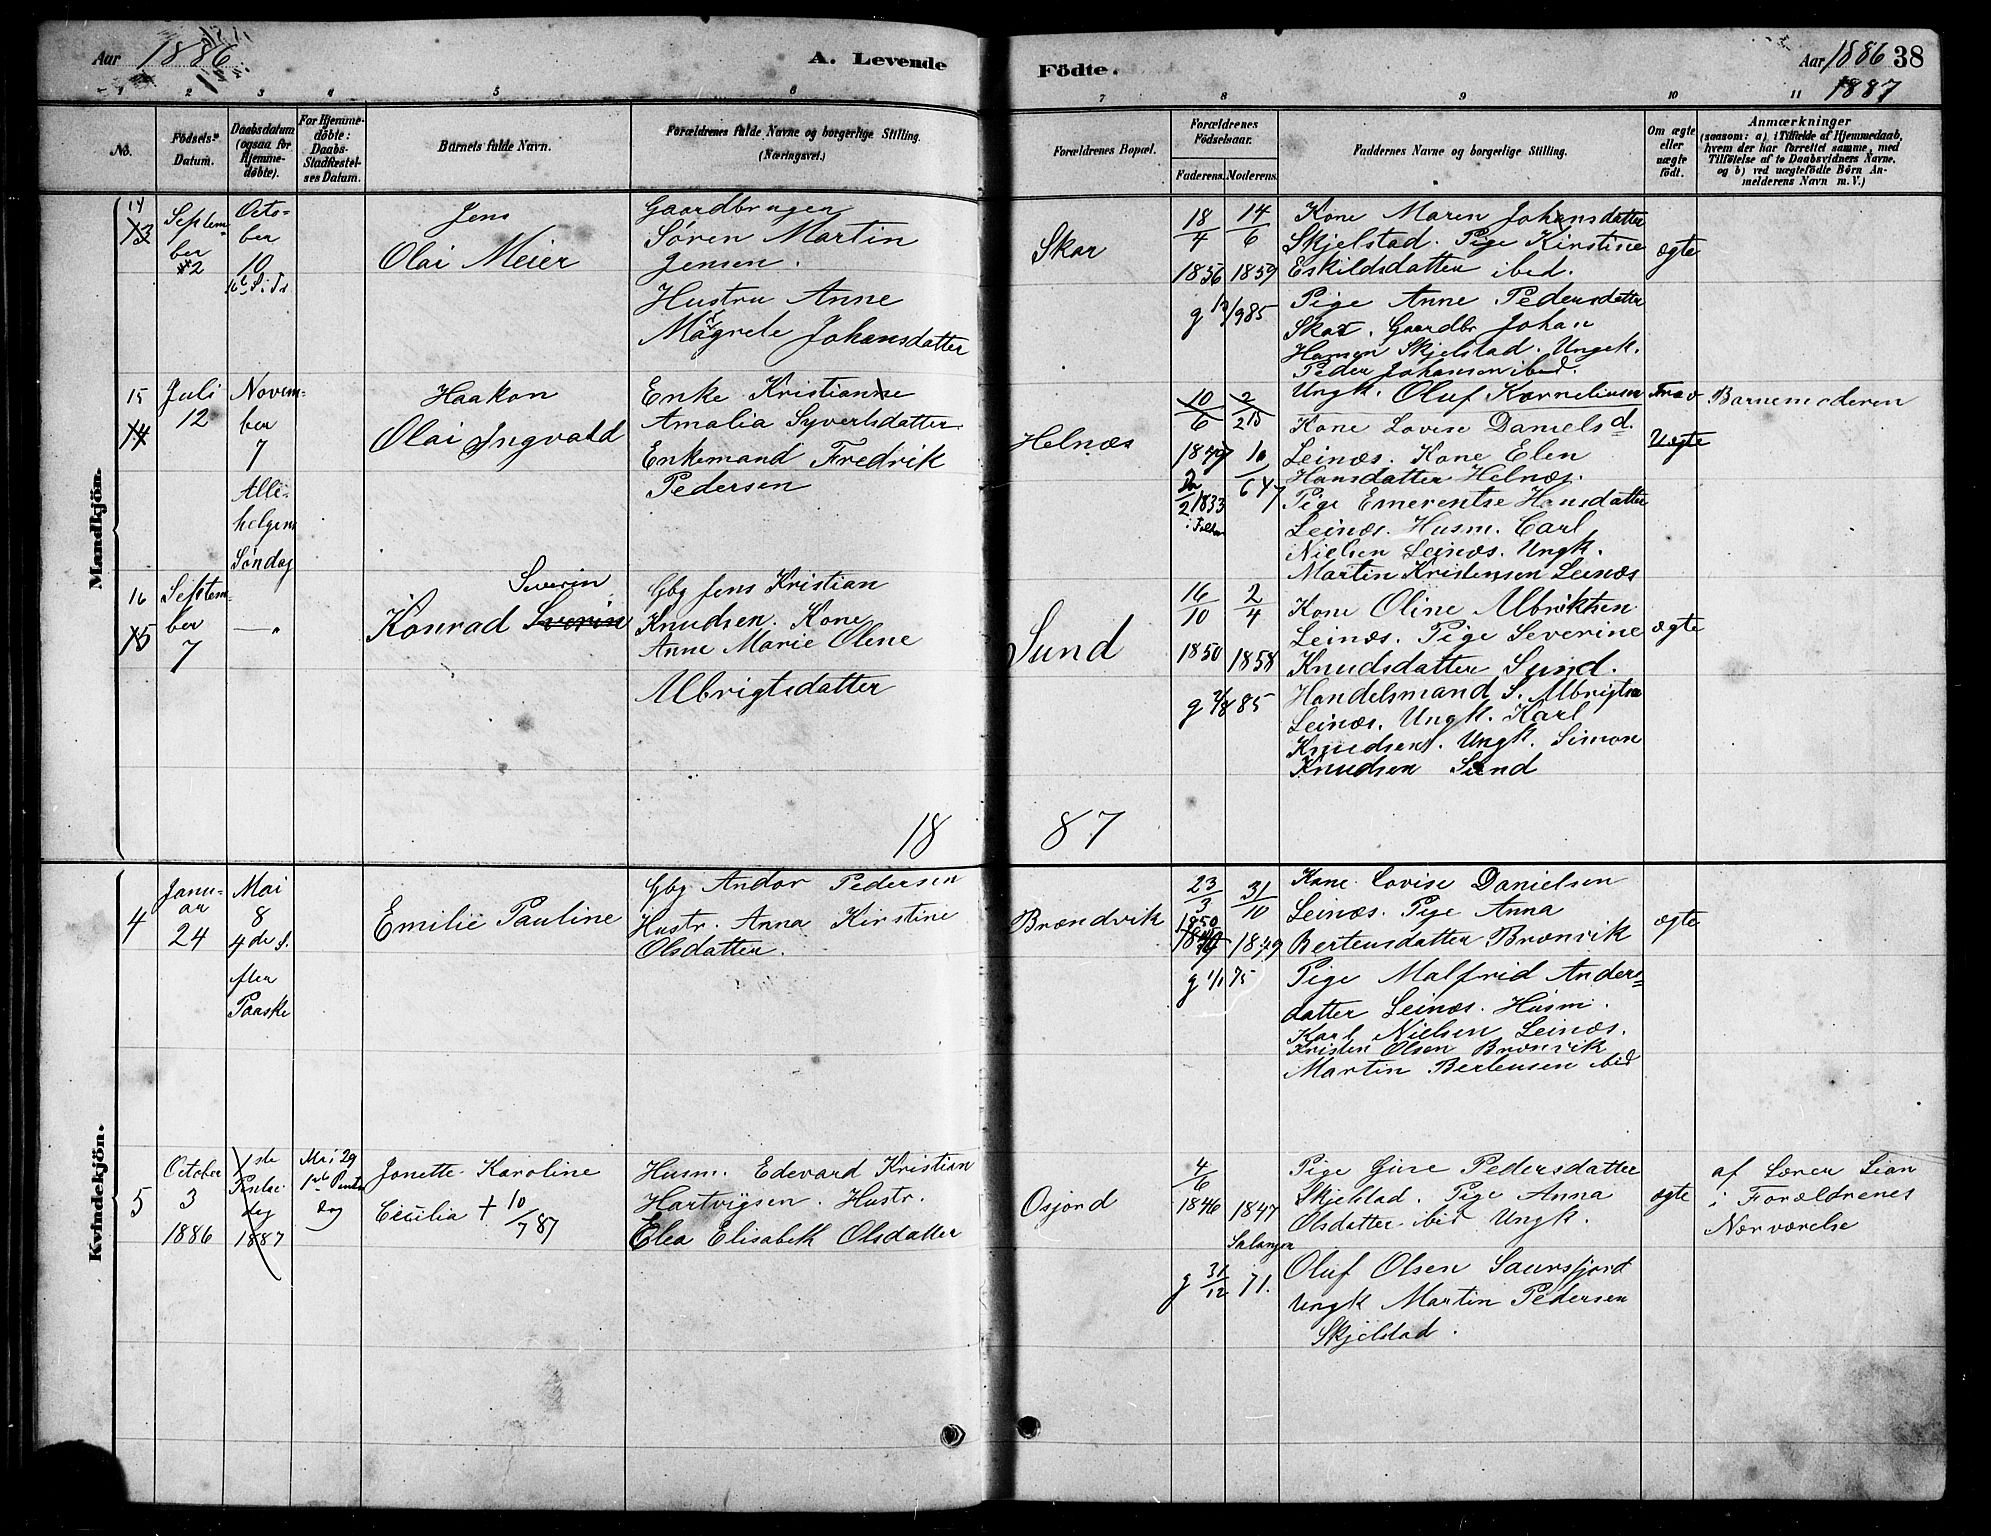 Aar 1886
A. Levende
Födte.
Aar 1886 38
1887
1 2 3 4 5 6 7 8 9 10 11
No.
Födsels-
Datum.
Daabsdatum
(ogsaa for
Hjemme-
döbte).
For Hjemme-
döbte:
Daabs-
Stadfæstel-
ses Datum.
Barnets fulde Navn.
Forældrenes fulde Navne og borgerlige Stilling.
(Næringsvei.)
Forældrenes Bopæl.
Forældrenes
Födselsaar.
Faderens. Moderens.
Faddernes Navne og borgerlige Stilling.
Om ægte
eller
uægte
födt.
Anmærkninger
(saasom: a) i Tilfælde af Hjemmedaab,
hvem der har forrettet samme, med
Tilföielse af to Daabsvidners Navne.
og b) ved uægtefödte Börn An-
melderens Navn m. V.)
Mandkjön.
14
13
Septem-
ber
2
Octo-
ber
10
Jens
Olai Meier
Gaardbrugen
Søren Martin
Jensen.
Hustru Anne
Magrete Johansdatter
Skar
18/4 14/6
1856 1859
g 12/9 85
Kone Maren Johansdatter
Skjelstad. Pige Kirstine
Eskildsdatter ibid.
Pige Anne Pedersdatter
Skar. Gaardbr Johan
Hansen Skjelstad. Ungk.
Peder Johansen ibid.
ægte
15
14
Juli
12
Novem-
ber
7
Alle-
helgens
Søndag
Haakon
Olai Ingvald
Enke Kristianne
Amalia Syvertsdatter
Enkemand Fredrik
Pedersen
Helnæs
10/6
1849 10/6 47
1833
Ungk. Oluf Korneliusen
Kone Lovise Daniels d.
Leinæs. Kone Elen
Hansdatter Helnæs.
Pige Emerentse Hansdatter
Leinæs. Husm. Carl
Nielsen Leinæs. Ungk.
Martin Kristensen Leinæs
Uægte
Barnemoderen
16
15
Septem-
ber
7
—"
Severin
Konrad Sverin
Gbg Jens Kristian
Knudsen. Kone
Anne Marie Olene
Albrigtsdatter
Sund
16/10 2/4
1850 1858
g 2/8 85
Kone Oline Albriktsen
Leinæs. Pige Severine
Knudsdatter Sund.
Handelsmand S. Albrigtsen
Leinæs. Ungk. Karl
Knudsen. Ungk. Simon
Knudsen Sund
ægte
18 87
Kvindekjön.
4
Janu-
ar
24
Mai
8
4de S.
efter
Paaske
Emilie Pauline
Gbg Andor Pedersen
Hustr. Anna Kirstine
Olsdatter.
Brændvik
23/3 31/10
1850
1849
g 1/1 75
Kone Lovise Danielsen
Leinæs. Pige Anna
Bertensdatter Brænvik
Pige Malfrid Anders-
datter Leinæs. Husm.
Karl Nielsen Leinæs.
Kristen Olsen Brænvik
Martin Bertensen ibid
ægte
5
October
3
1886
1ste
Pintse
dag
1887
Mai 29
1ste Pintse
dag
Jonette Karoline
Cecilia + 10/7 87
Husm. Edevard Kristian
Hartvigsen. Hustr.
Elea Elisabeth Olsdatter
Osjord
4/6
1846 1847
Salangen
g 31/12 71.
Pige Gine Pedersdatter
Skjelstad. Pige Anna
Olsdatter ibid Ungk.
Oluf Olsen Saursfjord
Ungk Martin Pedersen
Skjelstad.
ægte
af Lærer Lian
i Forældrenes
Nærværelse